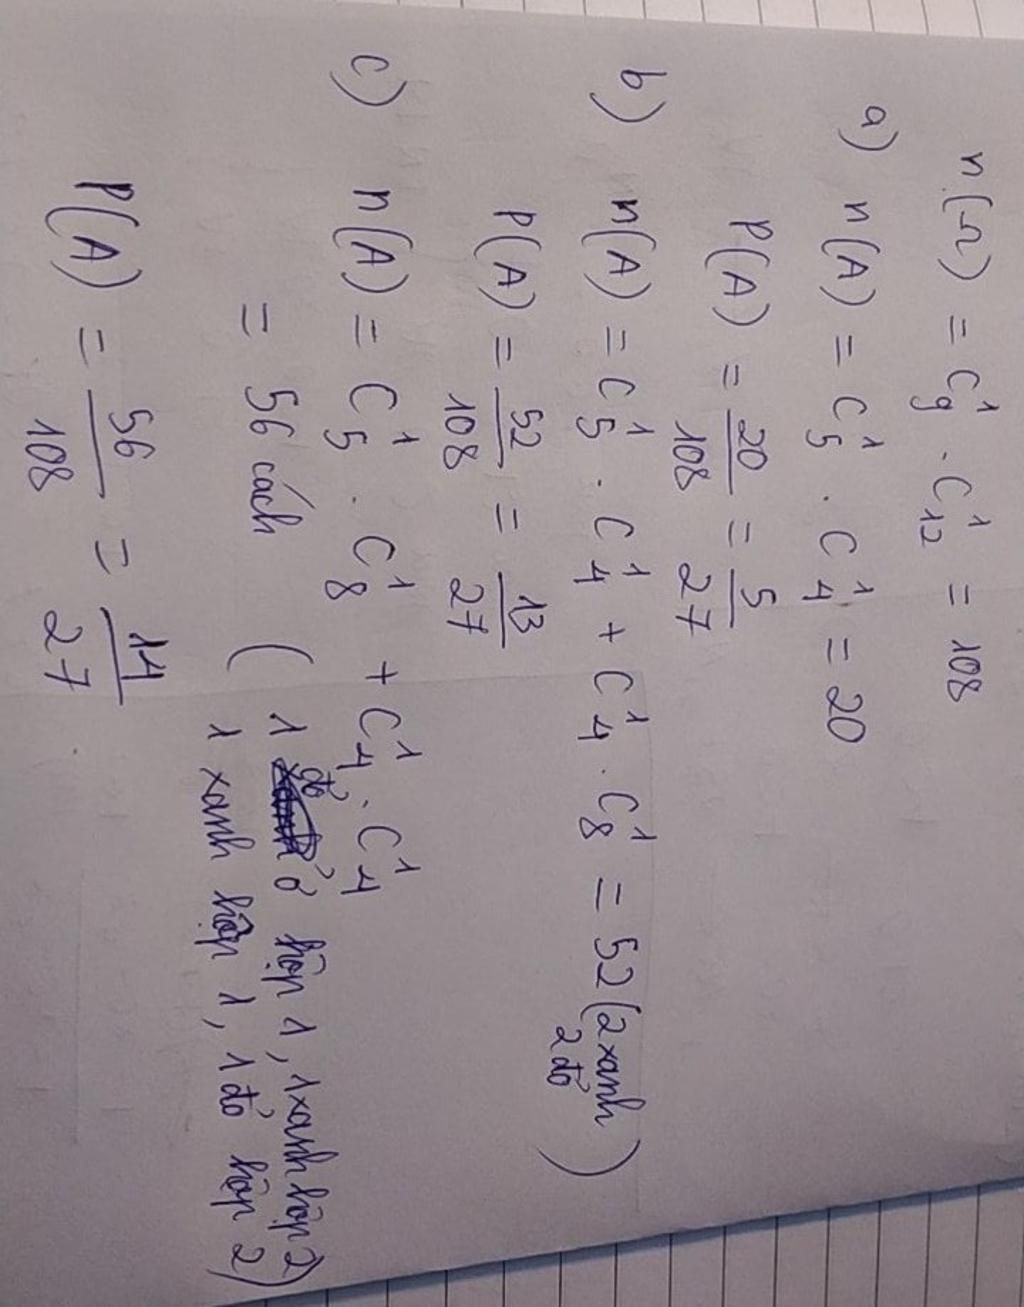 n(Ω) = C₉¹ . C₁₂¹ = 108
a) n(A) = C₅¹ . C₄¹ = 20
P(A) = 20/108 = 5/27
b) n(A) = C₅¹ . C₄¹ + C₄¹ . C₈¹ = 52 (2 xanh
2 đỏ)
P(A) = 52/108 = 13/27
c) n(A) = C₅¹ . C₈¹ + C₄¹ . C₄¹
= 56 cách ( 1 đỏ ở hộp 1, 1 xanh hộp 2
1 xanh hộp 1, 1 đỏ hộp 2)
P(A) = 56/108 = 14/27